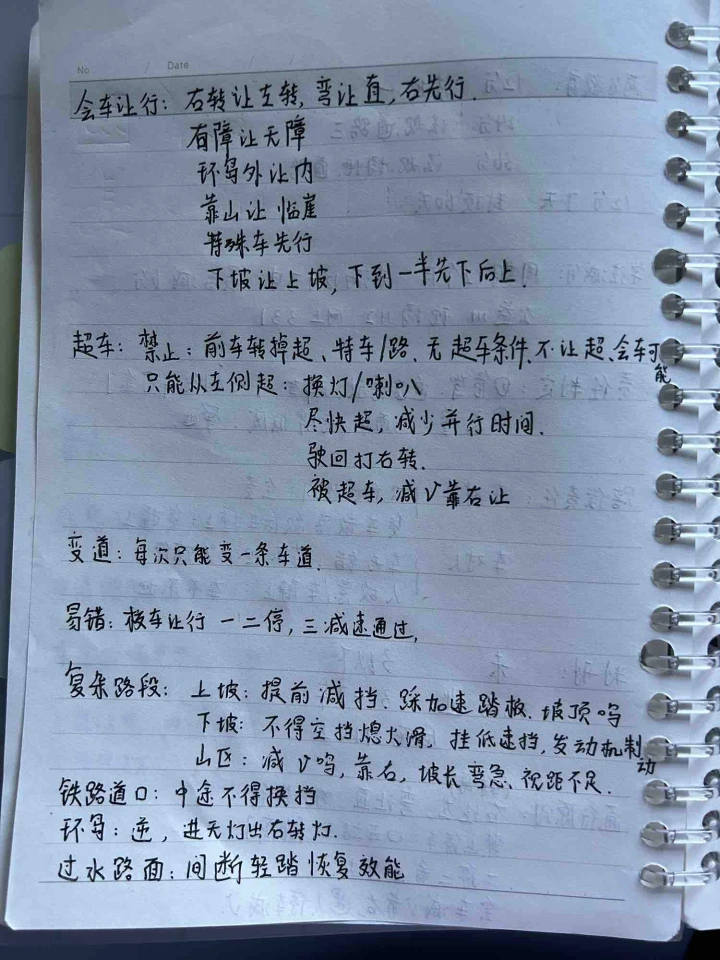 No / Date / /
会车让行：右转让左转，弯让直，右先行．
有障让无障
环岛外让内
靠山让临崖
特殊车先行
下坡让上坡，下到一半先下后上．
超车：禁止：前车转掉超、特车/路、无超车条件、不让超、会车可能
只能从左侧超：换灯/喇叭
尽快超，减少并行时间．
驶回打右转．
被超车，减V靠右让
变道：每次只能变一条车道．
易错：校车让行 一二停，三减速通过，
复杂路段：上坡：提前减挡．踩加速踏板．坡顶鸣
下坡：不得空挡熄火滑，挂低速挡，发动机制动
山区：减V鸣，靠右，坡长弯急、视距不足．
铁路道口：中途不得换挡
环岛：逆，进无灯出右转灯．
过水路面：间断轻踏恢复效能